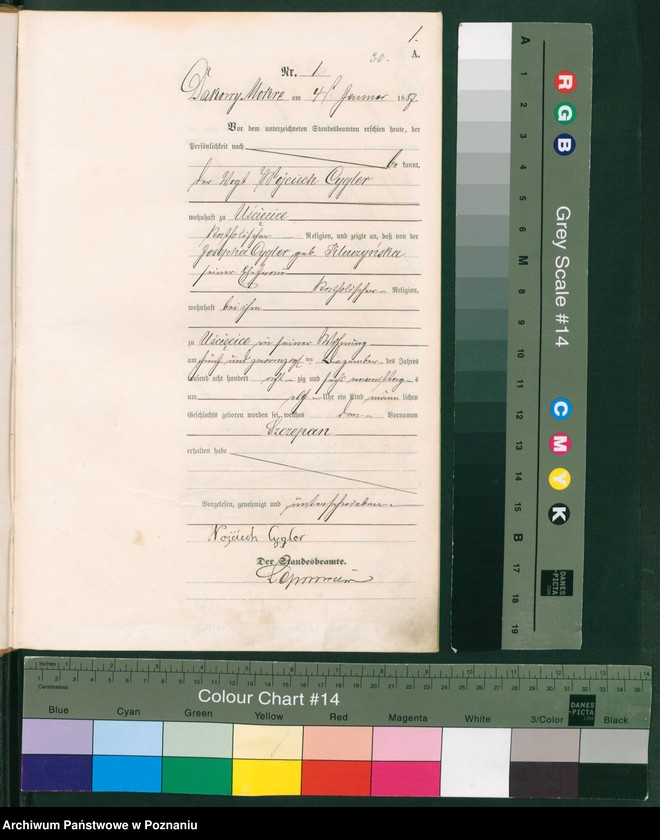 1.
30.
A.
Nr. 1
Dakowy Mokre am 4t Januar 1887
Vor dem unterzeichneten Standesbeamten erschien heute, der
Persönlichkeit nach
be kannt,
der Vogt Wojciech Cygler
wohnhaft zu Uścięcice
katholischer Religion, und zeigte an, daß von der
Josepha Cygler geb. Kluczyńska
seiner Ehefrau
katholischer Religion,
wohnhaft bei ihm
zu Uścięcice in seiner Wohnung
am fünf und zwanzigsten Dezember des Jahres
tausend acht hundert acht zig und sechs vormittags
um elf Uhr ein Kind männ lichen
Geschlechts geboren worden sei, welches den Vornamen
Szczepan
erhalten habe
Vorgelesen, genehmigt und unterschrieben.
Wojciech Cygler
Der Standesbeamte.
Inches 1 2 3 4 5 6 7 8 9 10 11 12 13 14
Centimetres 1 2 3 4 5 6 7 8 9 10 11 12 13 14 15 16 17 18 19 20 21 22 23 24 25 26 27 28 29 30 31 32 33 34 35
Colour Chart #14
DANES-PICTA.COM
Blue Cyan Green Yellow Red Magenta White 3/Color Black
Grey Scale #14
A 1 2 3 4 5 6 M 8 9 10 11 12 13 14 15 B 17 18 19
R G B
C M Y K
DANES-PICTA.COM
Archiwum Państwowe w Poznaniu